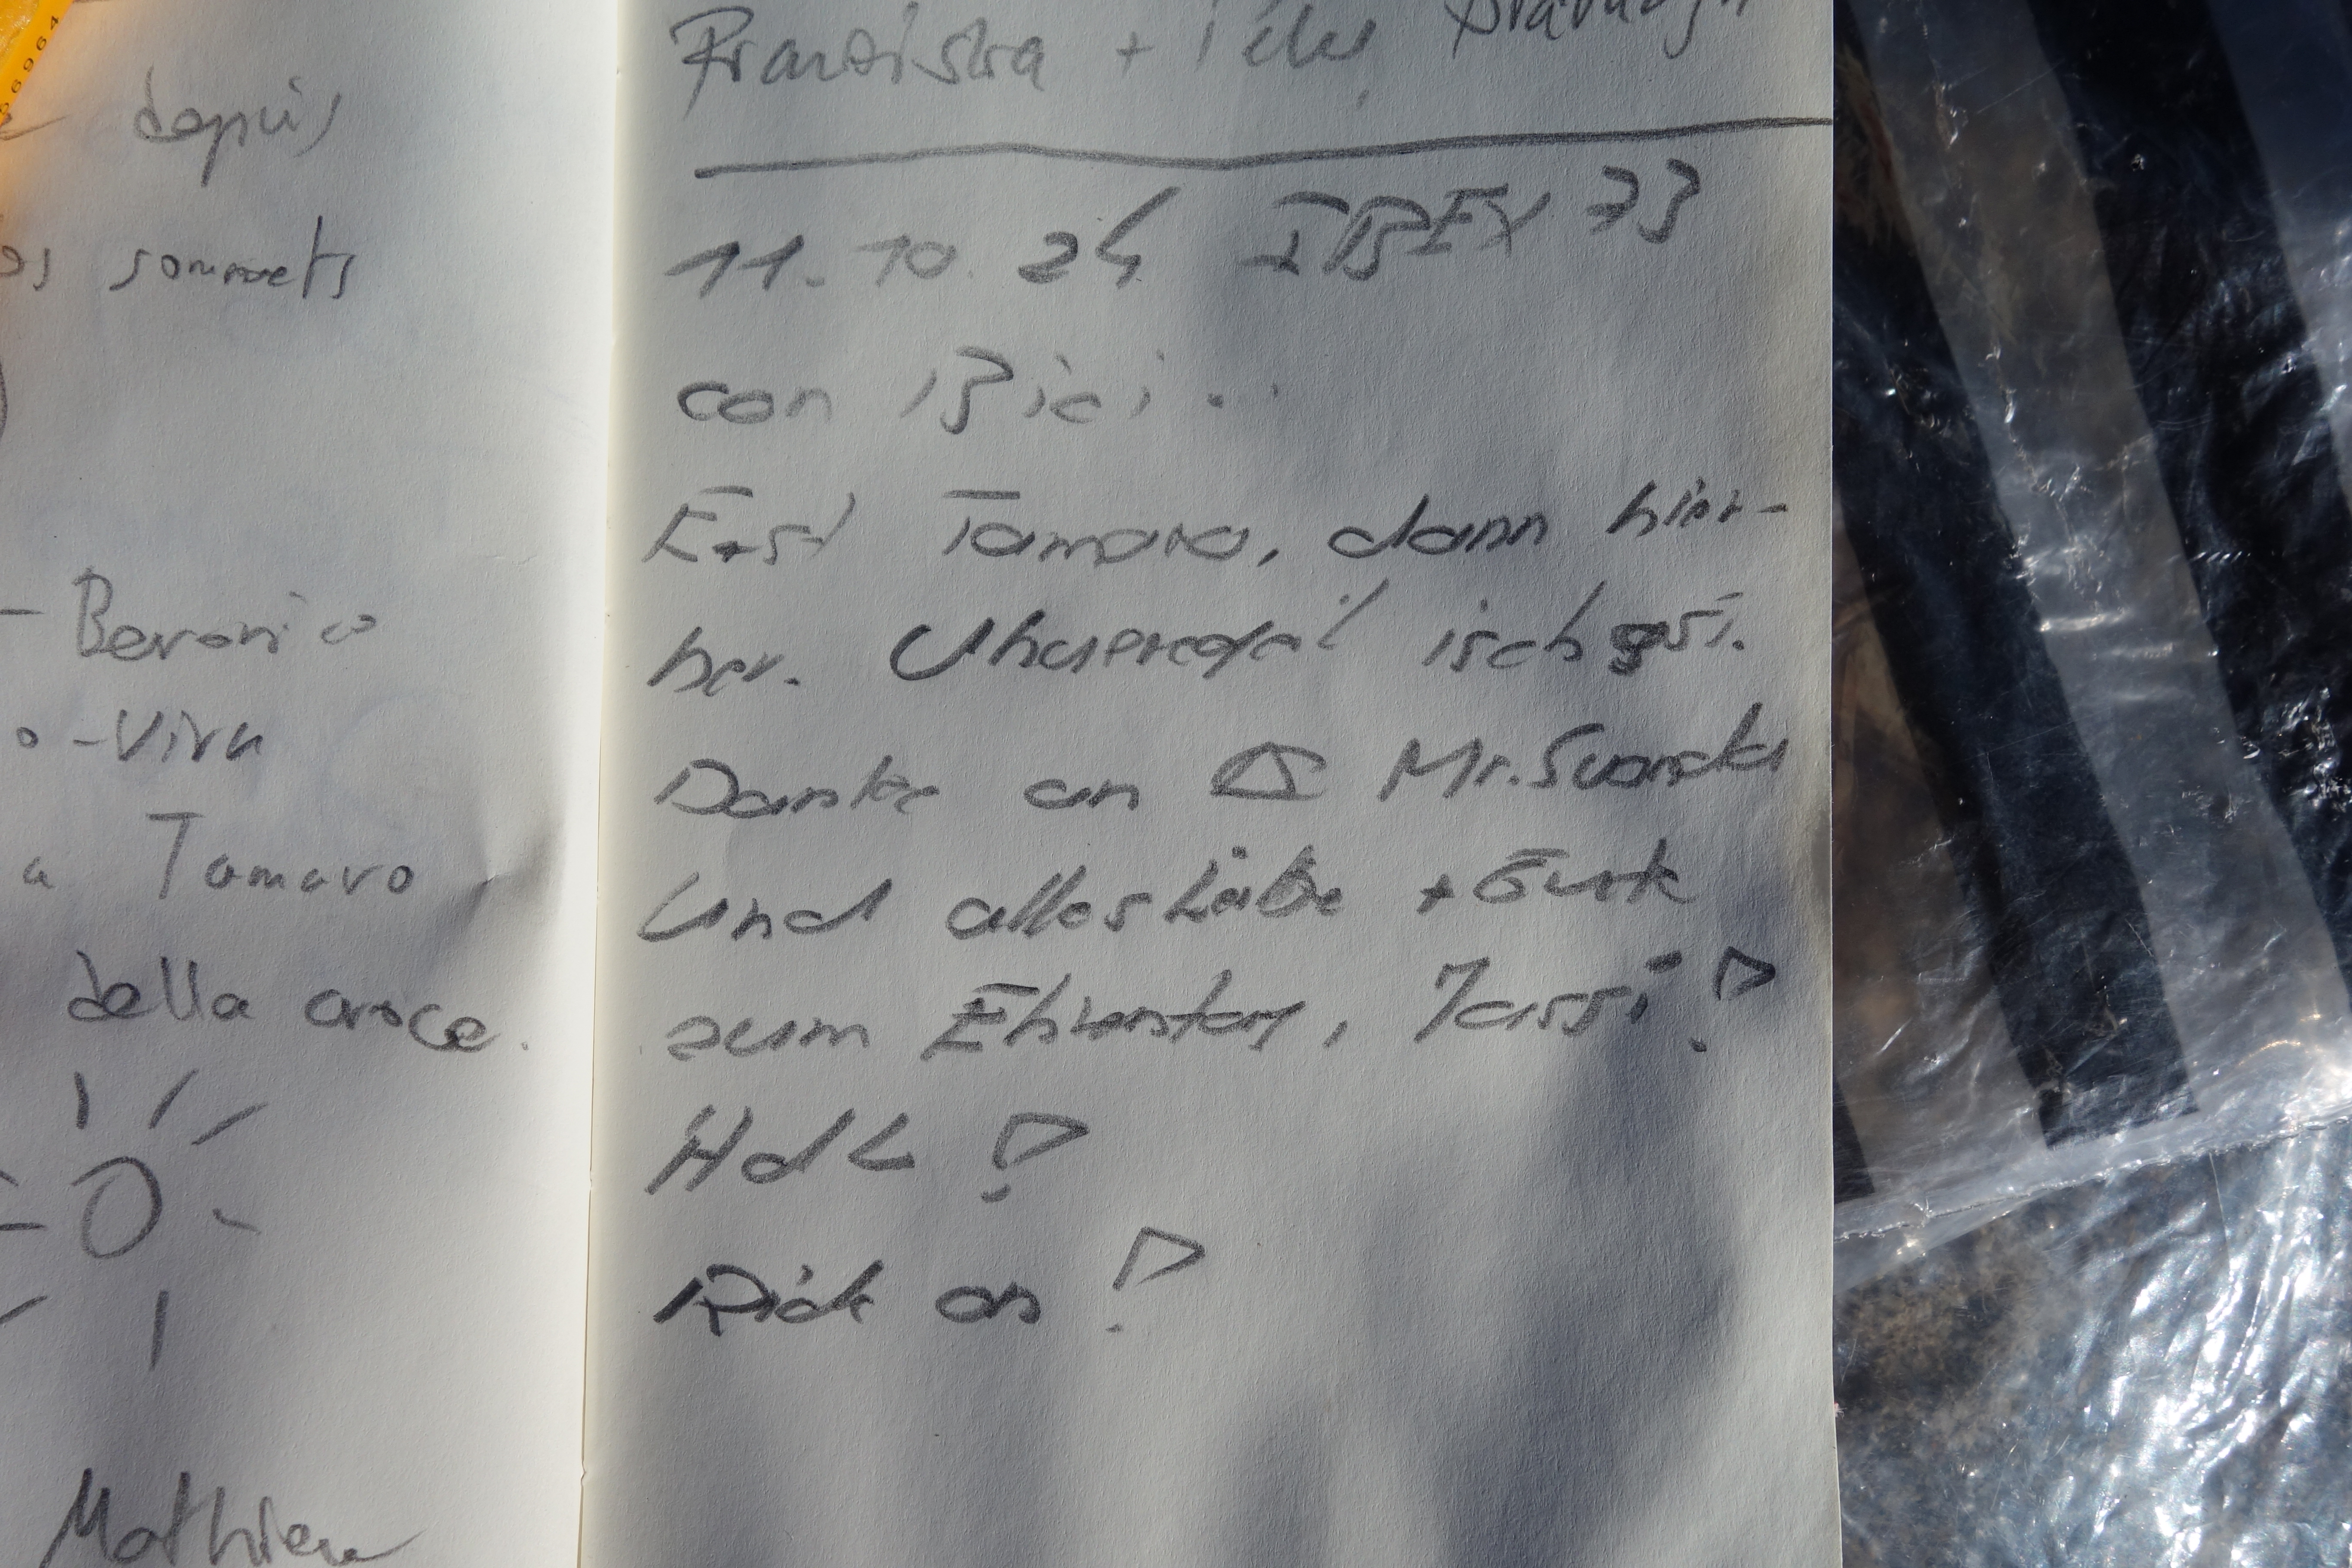 depuis
sommets
- Beronico
o - Vira
a Tamaro
della croce.
Mathieu
Franziska +
11.10.24 IBEX 73
con Bici..
Erst Tamaro, dann hier-
her. Uhueregeil isch gsi.
Danke an Mr.
Und alles Liebe +
zum Ehrentag, Jassi!
HdL!
Ride on!